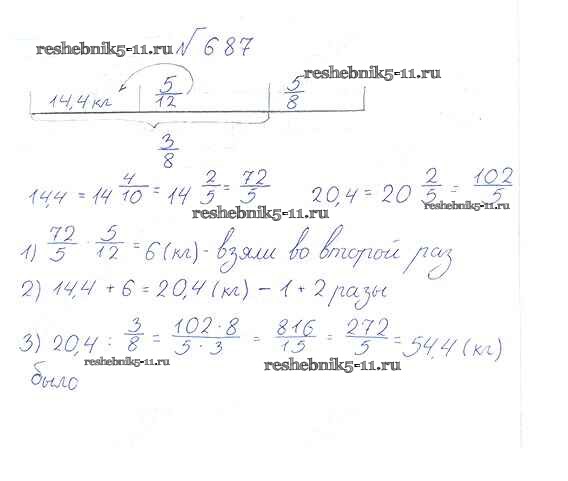 reshebnik5-11.ru № 687
reshebnik5-11.ru
14,4 кг 5/12 5/8
3/8
14,4 = 14 4/10 = 14 2/5 = 72/5 20,4 = 20 2/5 = 102/5
reshebnik5-11.ru reshebnik5-11.ru
1) 72/5 · 5/12 = 6 (кг) - взяли во второй раз
2) 14,4 + 6 = 20,4 (кг) – 1 + 2 разы
3) 20,4 : 3/8 = 102·8/5·3 = 816/15 = 272/5 = 54,4 (кг)
reshebnik5-11.ru reshebnik5-11.ru
было